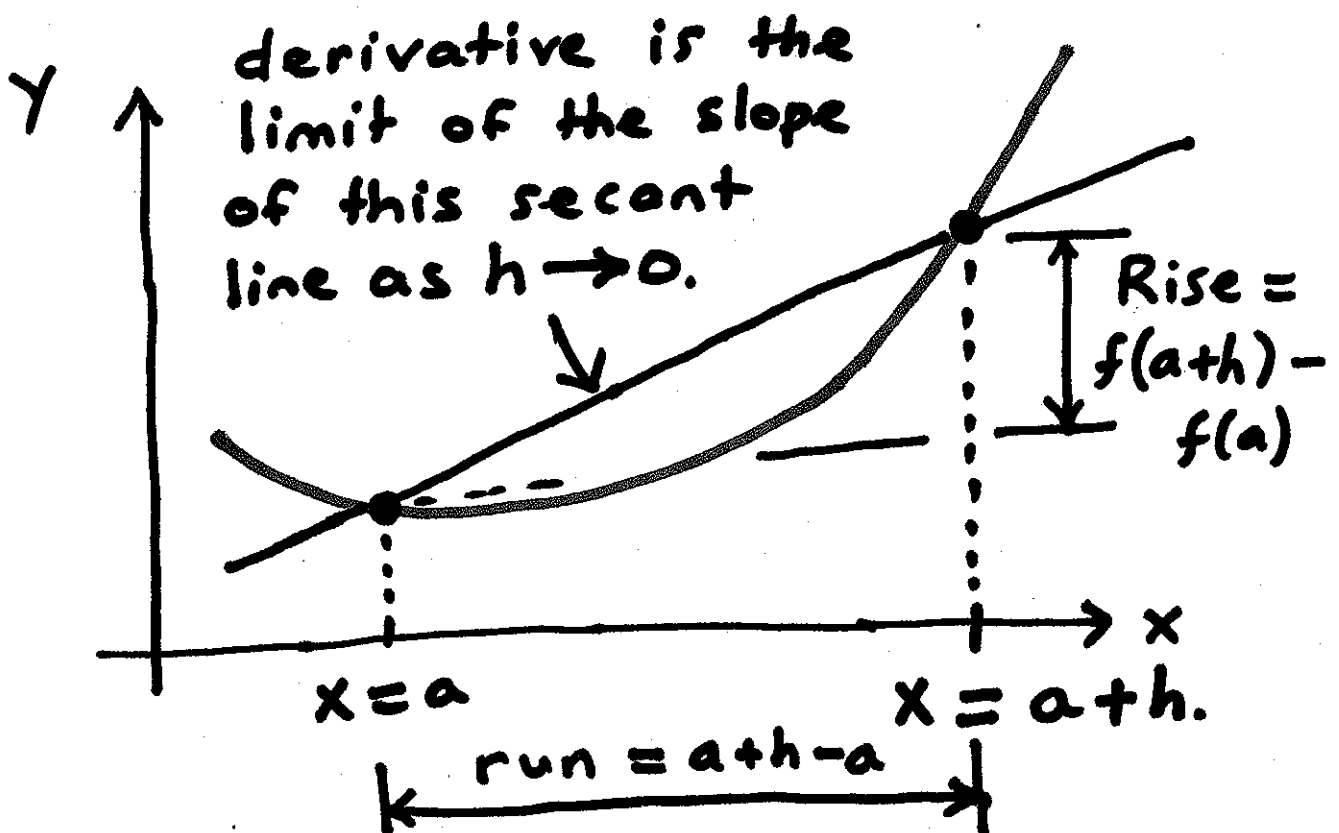 derivative is the
limit of the slope
of this secant
line as h→0.
y
Rise =
f(a+h) -
f(a)
x
x = a
x = a+h.
run = a+h-a